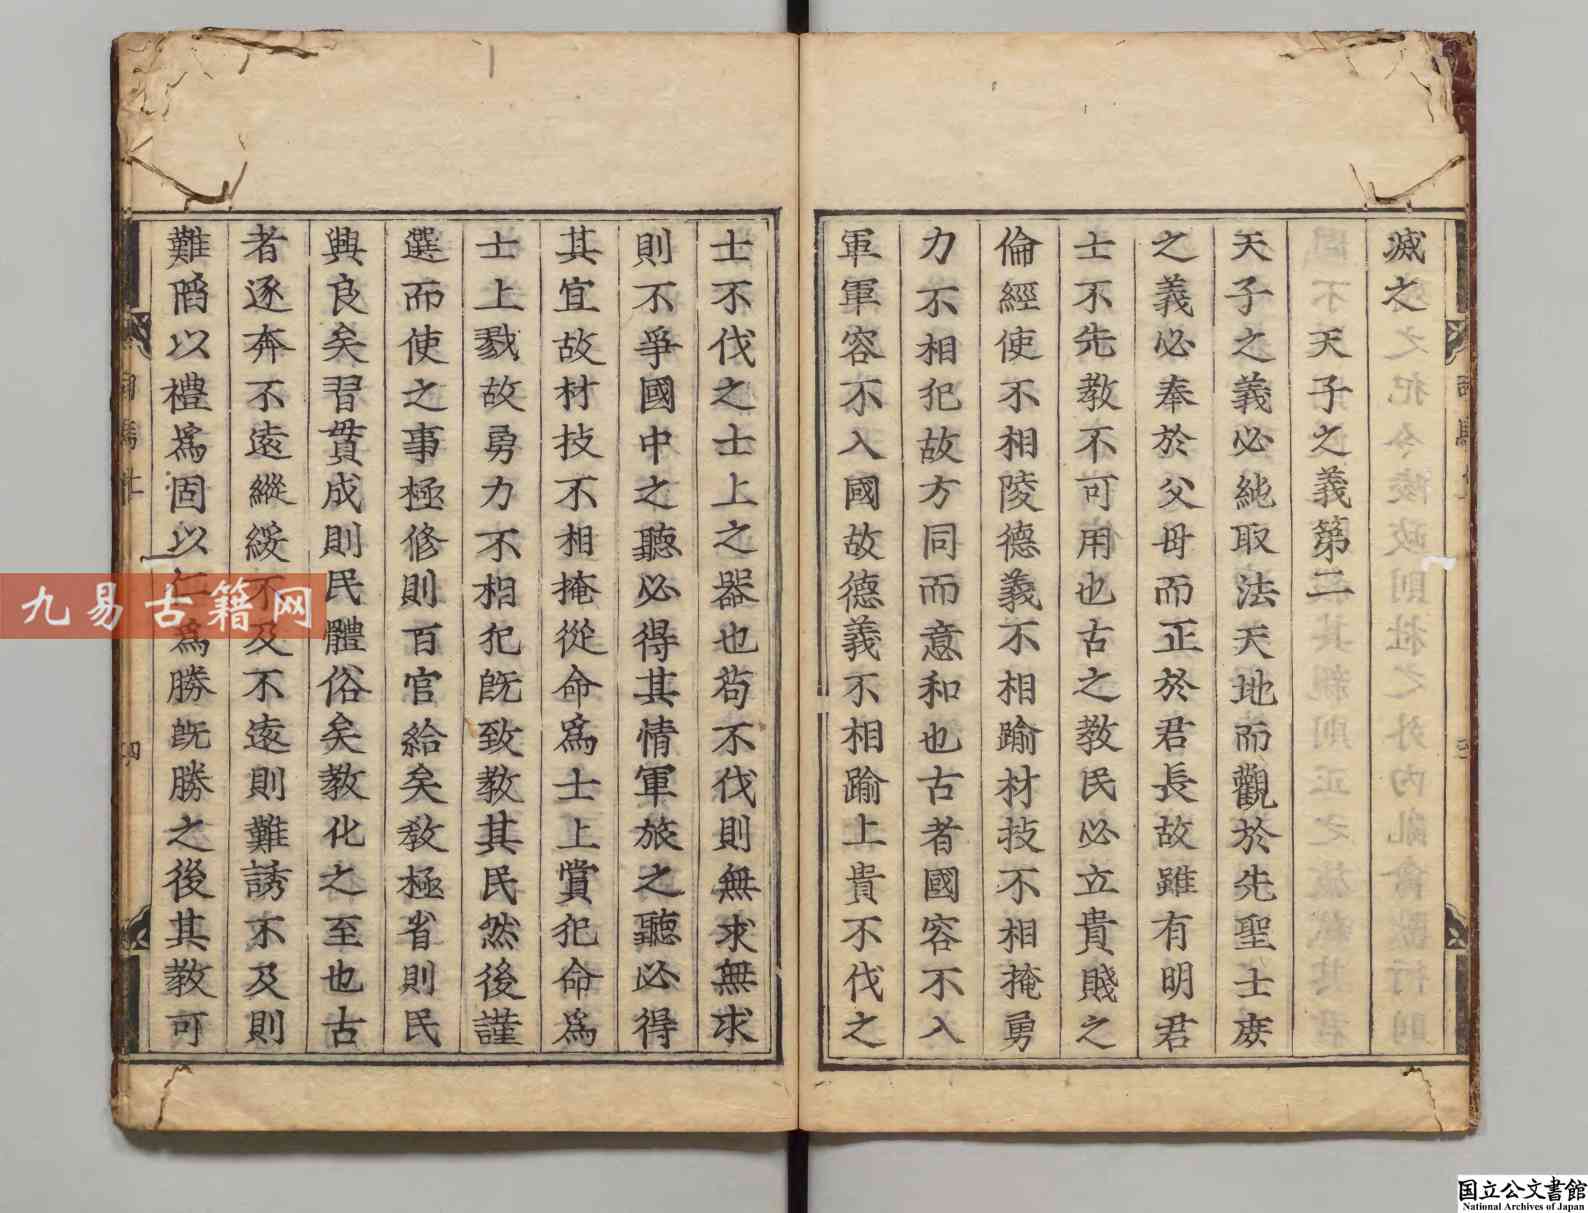 滅之
天子之義第二
天子之義必純取法天地而觀於先聖士庶
之義必奉於父母而正於君長故雖有明君
士不先教不可用也古之教民必立貴賤之
倫經使不相陵德義不相踰材技不相掩勇
力不相犯故方同而意和也古者國容不入
軍軍容不入國故德義不相踰上貴不伐之
士不伐之士上之器也苟不伐則無求無求
則不爭國中之聽必得其情軍旅之聽必得
其宜故材技不相掩從命為士上賞犯命為
士上戮故勇力不相犯既致教其民然後謹
選而使之事極修則百官給矣教極省則民
興良矣習貫成則民體俗矣教化之至也古
者逐奔不遠縱綏不及不遠則難誘不及則
難陷以禮為固以仁為勝既勝之後其教可
四
九易古籍网
国立公文書館
National Archives of Japan